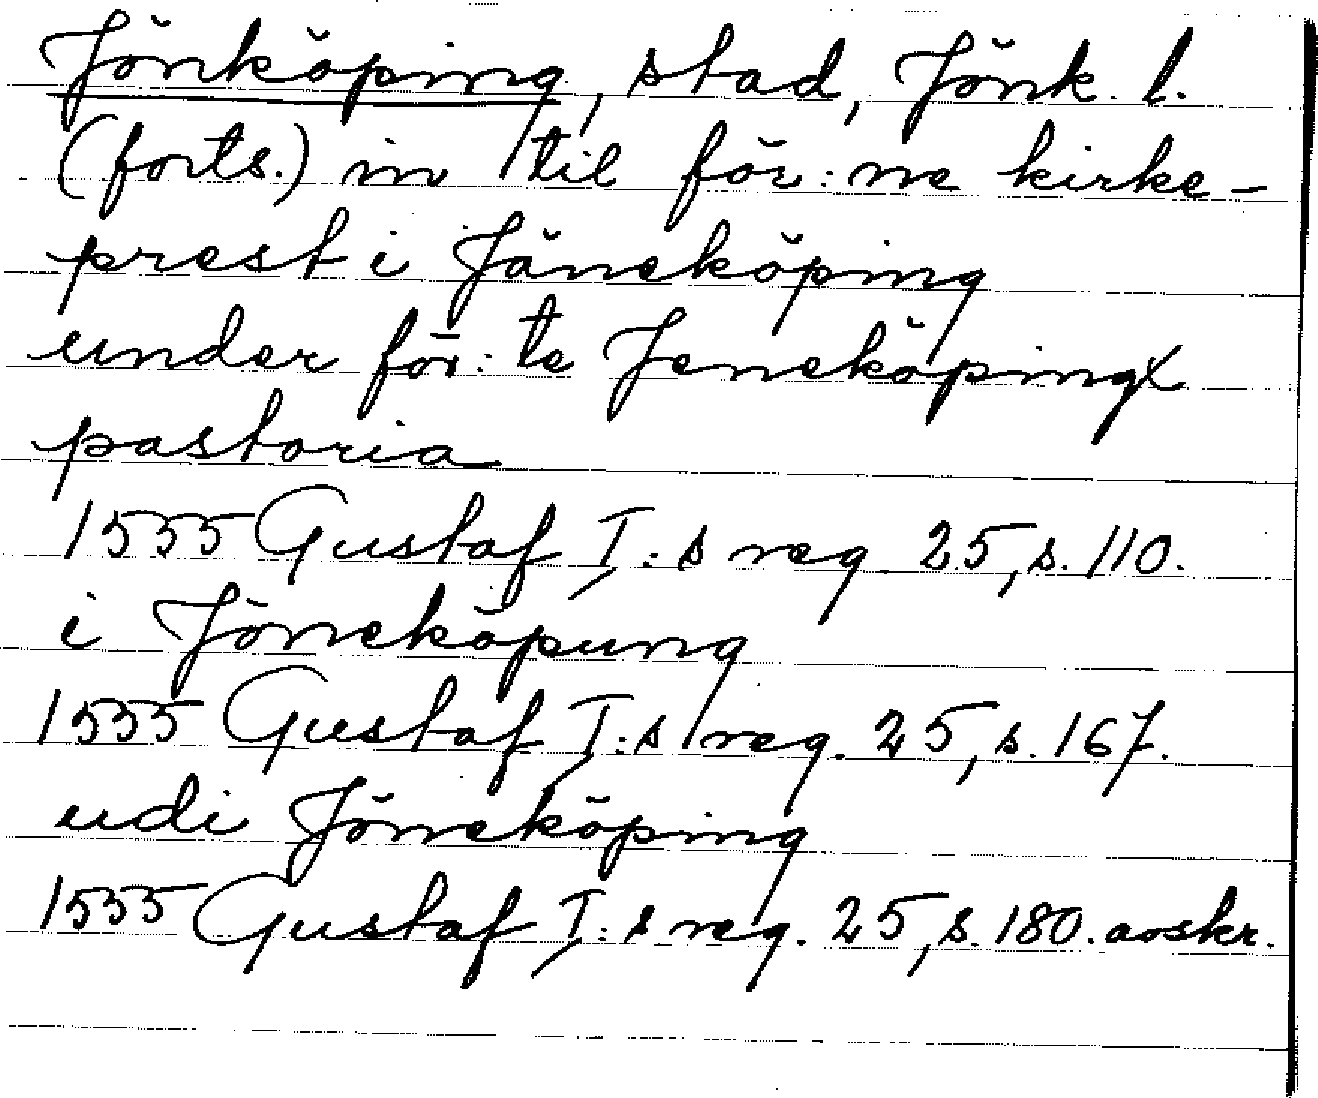 Jönköping, stad, Jönk. l.
(forts.) in til för:ne kirke-
prest i Jäneköping
under för:te Jeneköpingx
pastoria
1555 Gustaf I:s reg 25, s. 110.
i Jöneköpung
1555 Gustaf I:s reg. 25, s. 167.
udi Jöneköping
1555 Gustaf I:s reg. 25, s. 180. avskr.